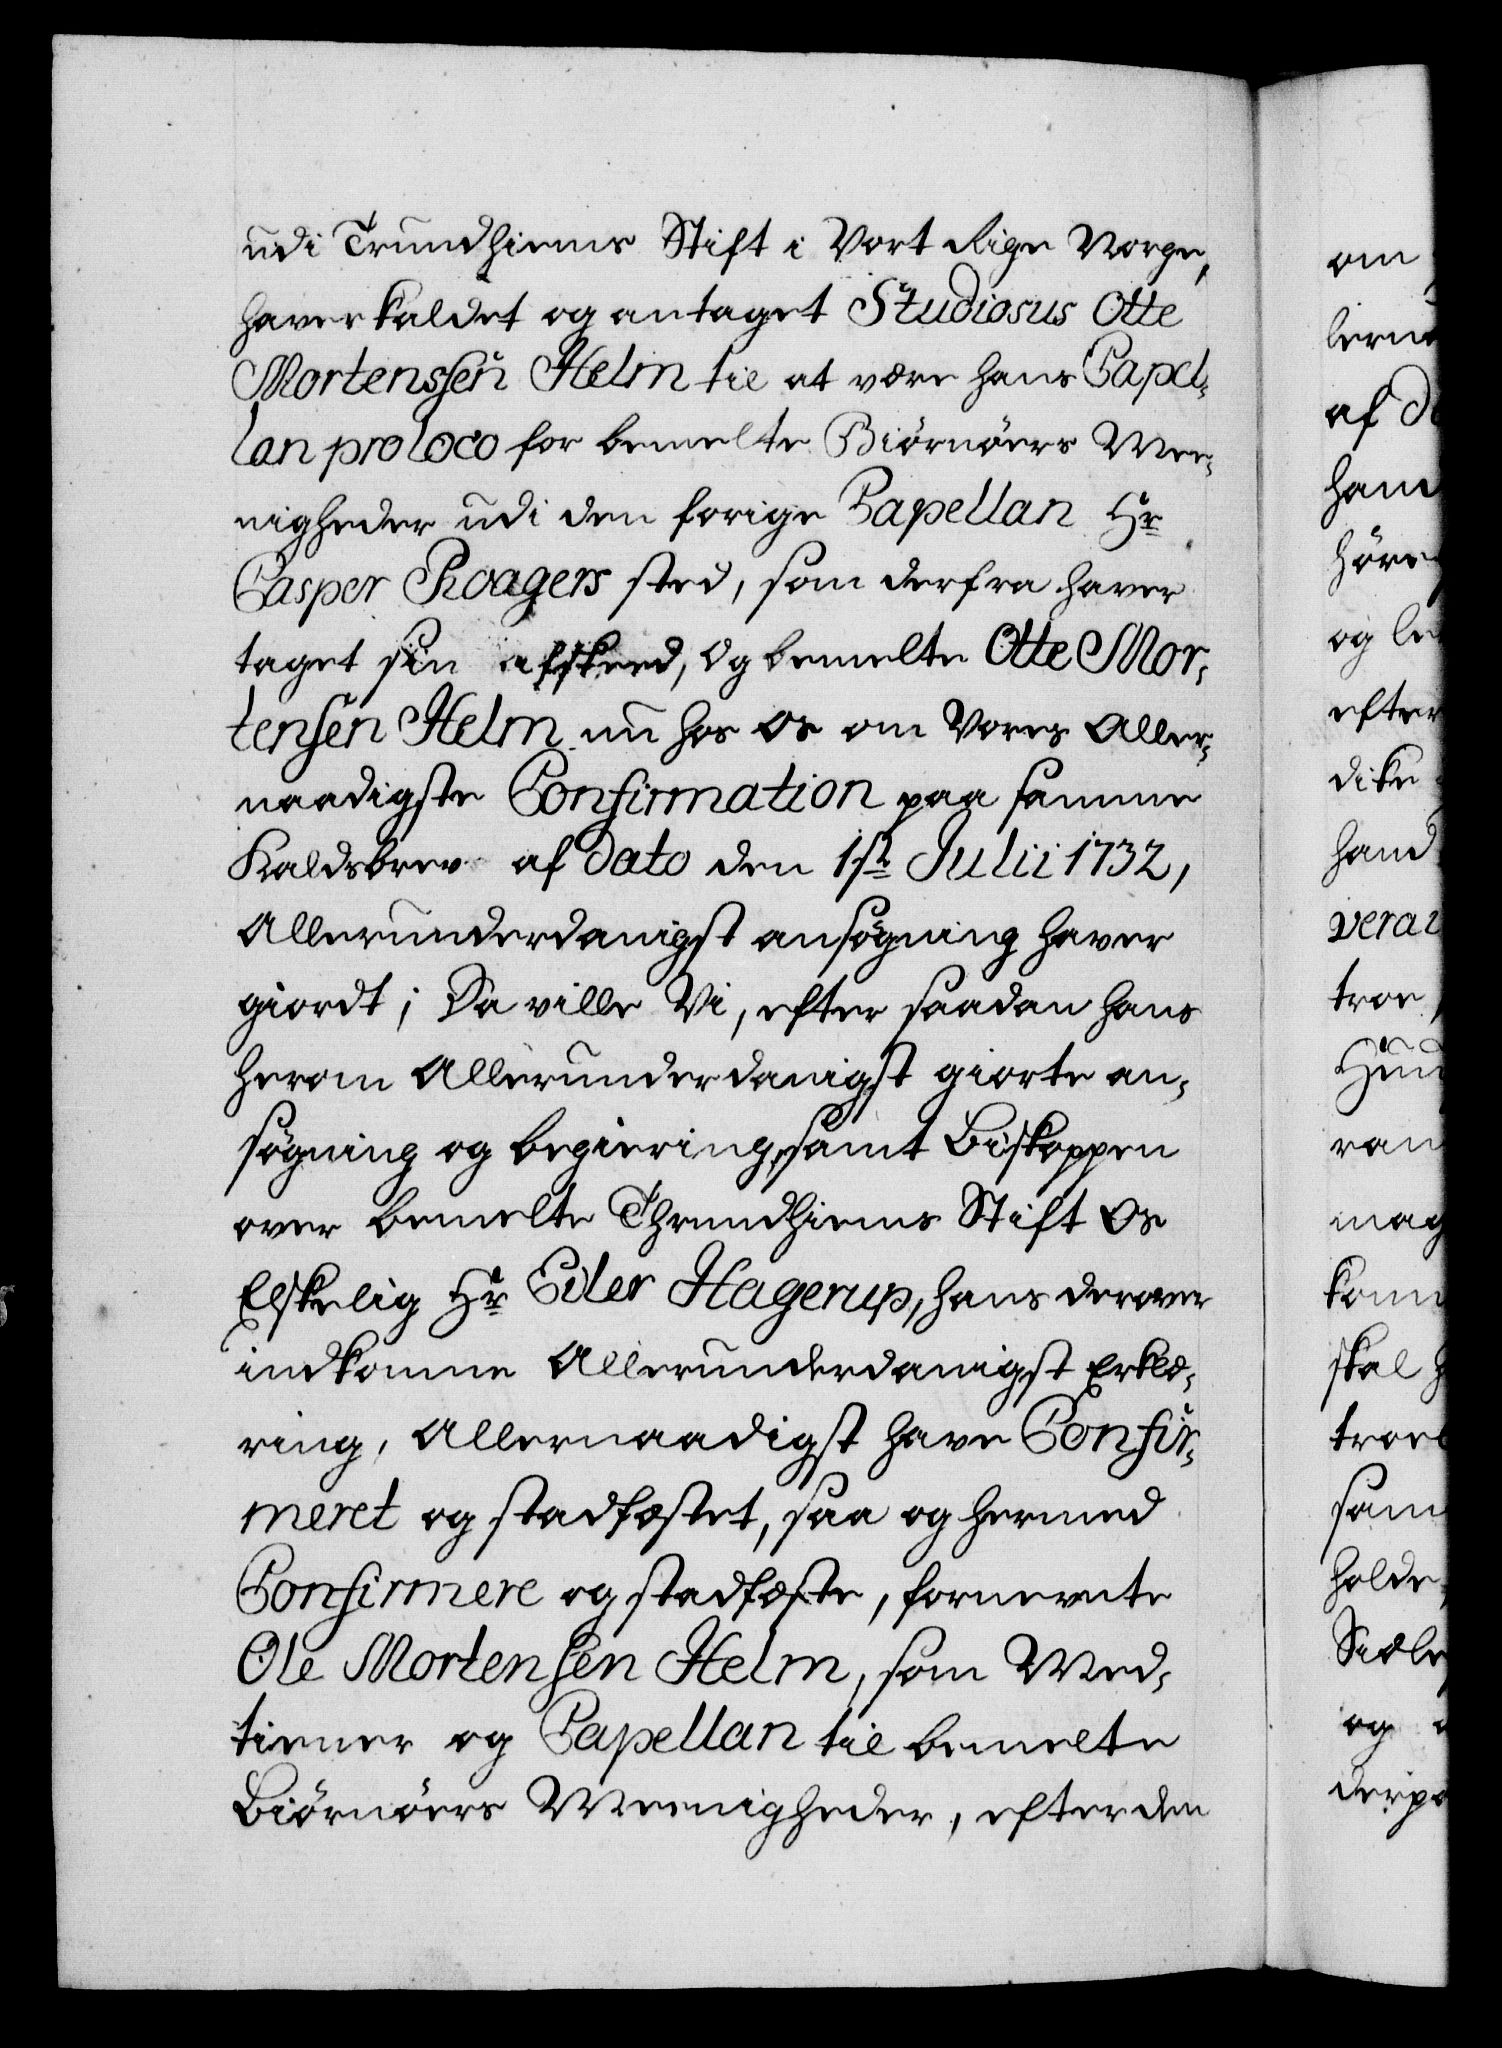 udi Trundhiems Stift i Vort Rige Norge,
haver kaldet og antaget Studiosus Otte
Mortenssen Helm til at være hans Capel-
lan pro loco for bemelte Biörnöers Mee-
nigheder udi den forige Capellan Hr
Casper Roagers sted, som derfra haver
taget sin afskeed, og bemelte Otte Mor-
tensen Helm nu hos Os om Vores Aller-
naadigste Confirmation paa samme
Kaldsbrev af Dato den 1ste Julii 1732,
Allerunderdanigst ansögning haver
giordt; Da ville Vi, efter saadan hans
herom Allerunderdanigst giorte an-
sögning og begiering, samt Biskoppen
over bemelte Thrundhiems Stift Os
Elskelig Hr Eiler Hagerup, hans derover
indkomne Allerunderdanigst Erklæ-
ring, Allernaadigst have Confir-
meret og stadfæstet, saa og hermed
Confirmere og stadfæste, fornevnte
Ole Mortensen Helm, som Med-
tiener og Capellan til bemelte
Biörnöers Meenigheder, efter den
om
af
og
efter
hand
troe
mag
skal
holde
og